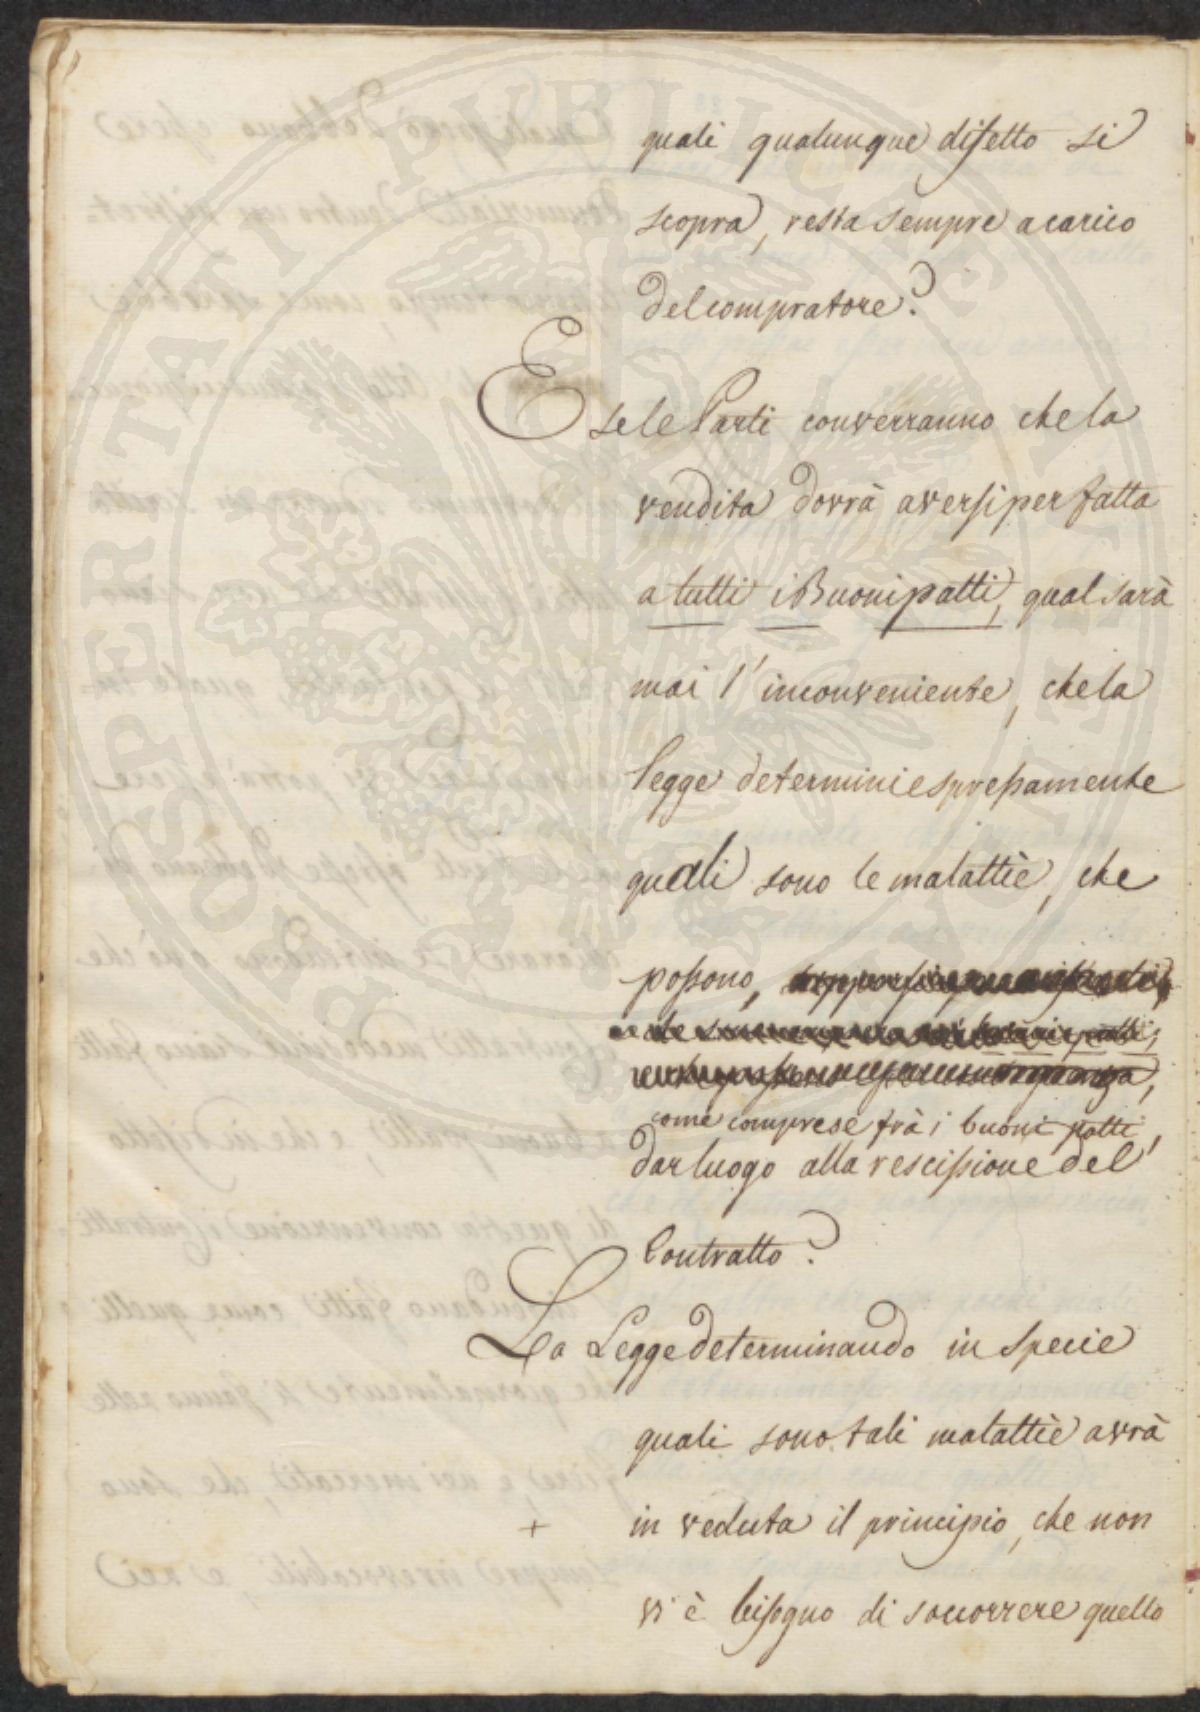 quali qualunque difetto si
scopra, resta sempre a carico
del compratore?
E se le Parti converranno che la
vendita dovrà aversi per fatta
a tutti i Buoni patti, qual sarà
mai l'inconveniente, che la
legge determini espressamente
quali sono le malattìe, che
possono,
come comprese frà i buoni patti,
dar luogo alla rescissione del
Contratto?
La Legge determinando in specie
quali sono tali malattìe avrà
+ in veduta il principio, che non
vi è bisogno di soccorrere quello
PROSPERITATI PVBLICAE